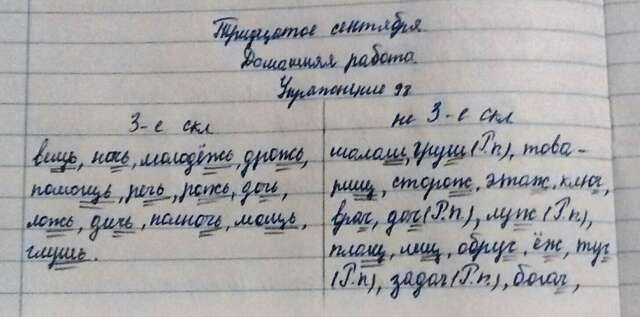 Тридцатое сентября.
Домашняя работа.
Упражнение 92
3-е скл
вещь, ночь, молодёжь, дрожь,
помощь, речь, рожь, дочь,
ложь, дичь, полночь, мощь,
глушь.
не 3-е скл
шалаш, груш (Р.п), това-
рищ, сторож, этаж, ключ,
врач, дач (Р.п), луж (Р.п),
плащ, лещ, обруч, ёж, туч
(Р.п), задач (Р.п.), богач,